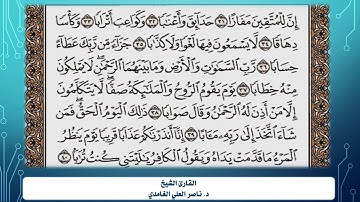 إِنَّ لِلْمُتَّقِينَ مَفَازًا ٣١ حَدَآئِقَ وَأَعْنَٰبًا ٣٢ وَكَوَاعِبَ أَتْرَابًا ٣٣ وَكَأْسًا
دِهَاقًا ٣٤ لَّا يَسْمَعُونَ فِيهَا لَغْوًا وَلَا كِذَّٰبًا ٣٥ جَزَآءً مِّن رَّبِّكَ عَطَآءً
حِسَابًا ٣٦ رَّبِّ ٱلسَّمَٰوَٰتِ وَٱلْأَرْضِ وَمَا بَيْنَهُمَا ٱلرَّحْمَٰنِ لَا يَمْلِكُونَ
مِنْهُ خِطَابًا ٣٧ يَوْمَ يَقُومُ ٱلرُّوحُ وَٱلْمَلَٰٓئِكَةُ صَفًّا لَّا يَتَكَلَّمُونَ
إِلَّا مَنْ أَذِنَ لَهُ ٱلرَّحْمَٰنُ وَقَالَ صَوَابًا ٣٨ ذَٰلِكَ ٱلْيَوْمُ ٱلْحَقُّ فَمَن
شَآءَ ٱتَّخَذَ إِلَىٰ رَبِّهِۦ مَـَٔابًا ٣٩ إِنَّآ أَنذَرْنَٰكُمْ عَذَابًا قَرِيبًا يَوْمَ يَنظُرُ
ٱلْمَرْءُ مَا قَدَّمَتْ يَدَاهُ وَيَقُولُ ٱلْكَافِرُ يَٰلَيْتَنِى كُنتُ تُرَٰبًۢا ٤٠
القارئ الشيخ
د. ناصر العلي الغامدي